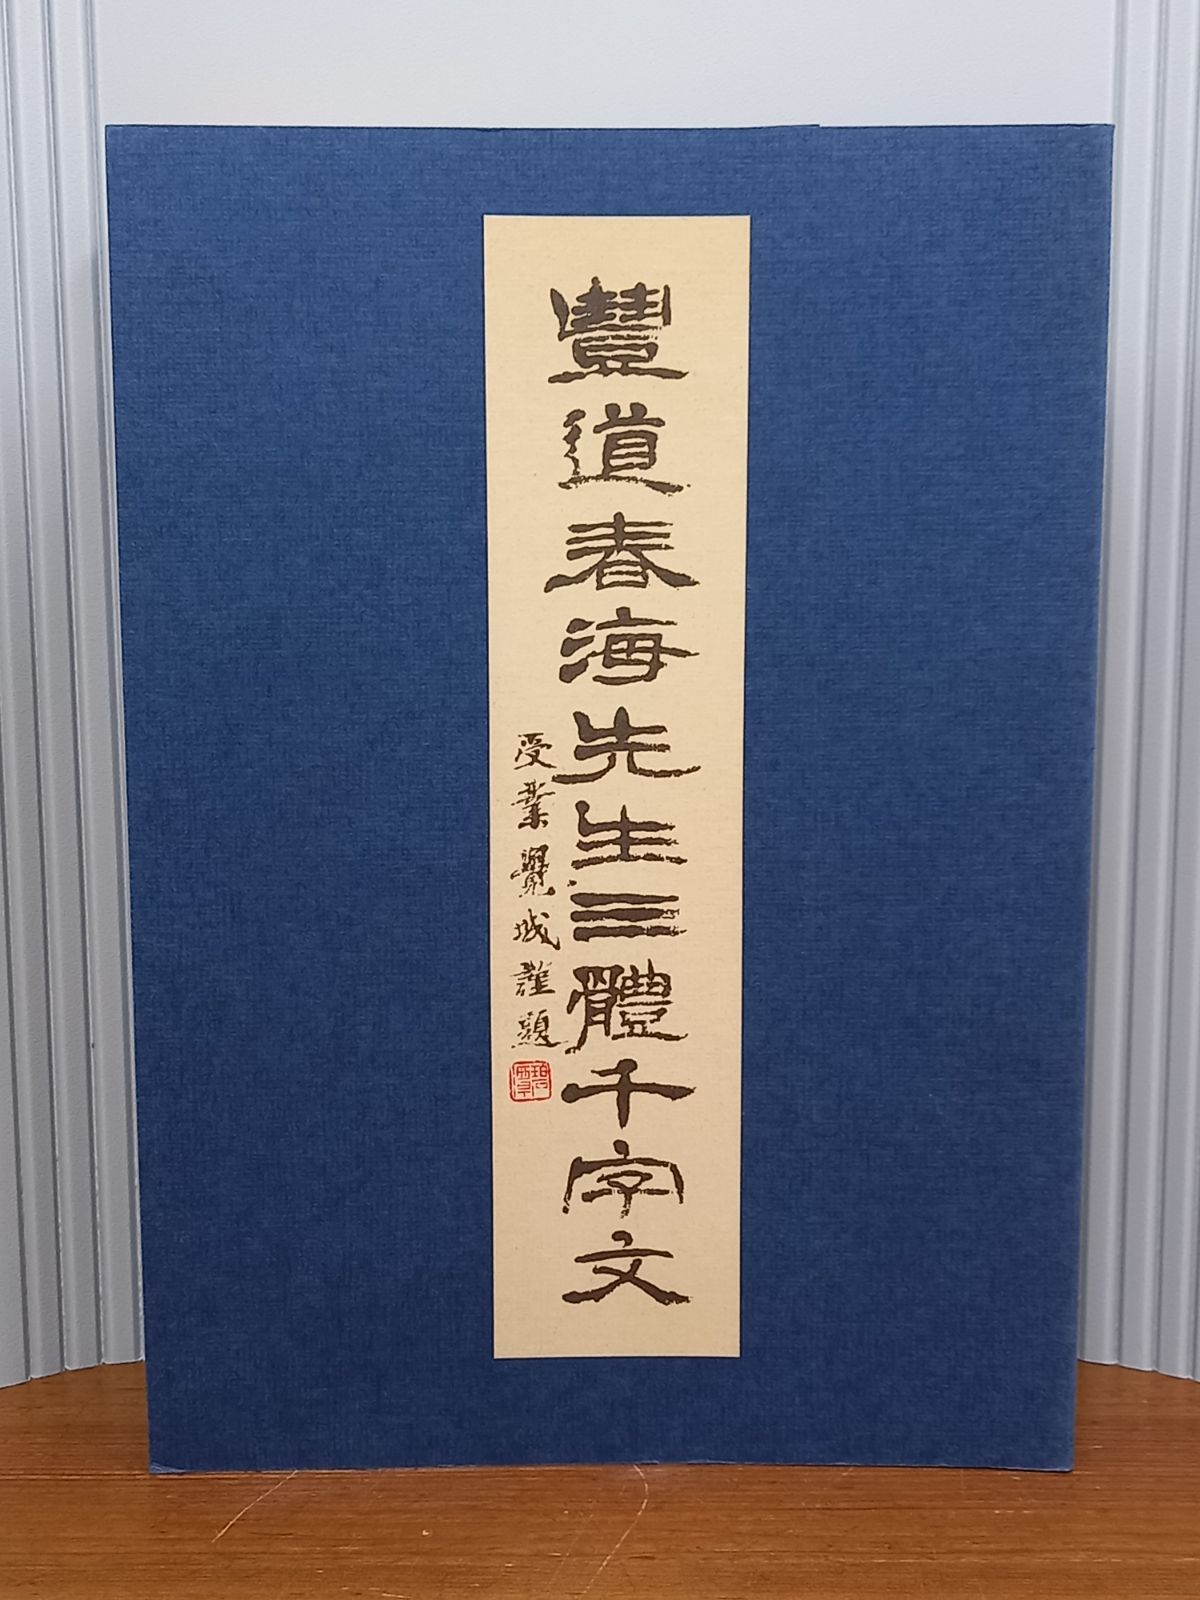 豐道春海先生三體千字文
受業覺城謹題